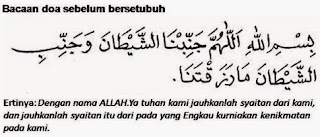 Bacaan doa sebelum bersetubuh
بِسْمِ اللهِ اَللّٰهُمَّ جَنِّبْنَا الشَّيْطَانَ وَجَنِّبِ
الشَّيْطَانَ مَا رَزَقْتَنَا.
Ertinya: Dengan nama ALLAH.Ya tuhan kami jauhkanlah syaitan dari kami,
dan jauhkanlah syaitan itu dari pada yang Engkau kurniakan kenikmatan
pada kami.